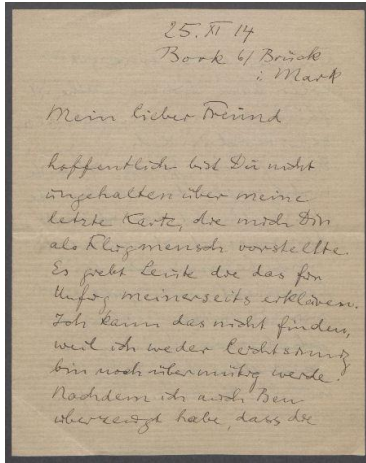 25. XI 14
Bork b/ Brück
i. Mark
Mein lieber Freund
hoffentlich bist Du nicht
ungehalten über meine
letzte Karte, die mich Dir
als Flugmensch vorstellte.
Es giebt Leute die das für
Unfug meinerseits erklären.
Ich kann das nicht finden,
weil ich weder leichtsinnig
bin noch übermütig werde.
Nachdem ich auch
überzeugt habe, dass die